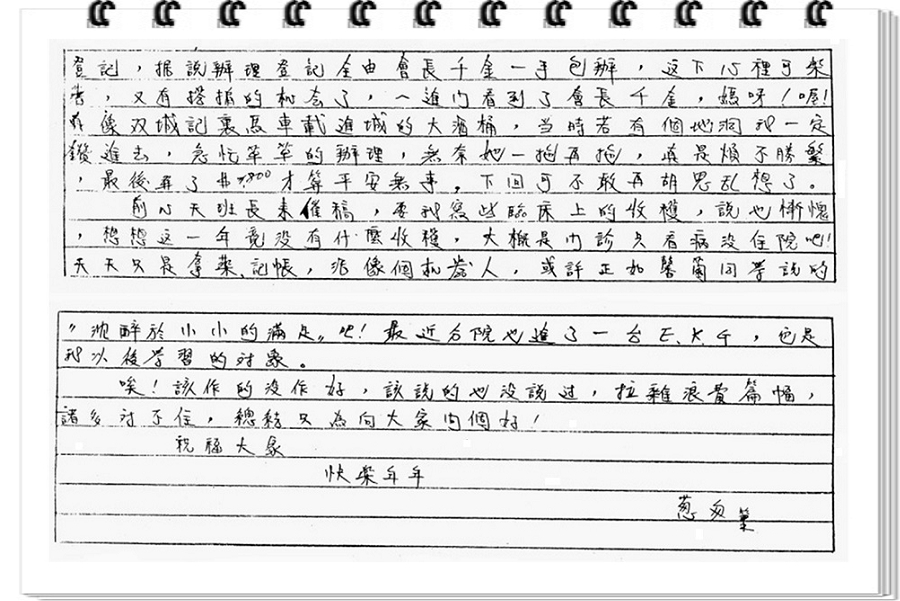 登記，据說辦理登記全由會長千金一手包辦，这下心裡可樂
，又有搭揹的机会了，一進門看到了會長千金，媽呀！喔！
像双城記裏馬車載進城的大酒桶，当時若有個地洞我一定
鑽進去，急忙草草的辦理，無奈她一拖再拖，真是煩不勝繁
，最後弄了 才算平安無事，下回可不敢再胡思乱想了。
前以天班長来催稿，要我寫些臨床上的收穫，說也慚愧
，想想这一年竟没有什麼收穫，大概是内診只看病没住院吧！
天天只是拿藥、記帳，像個机器人，或許正如同学說的
〃沈醉於小小的滿足〃吧！最近分院也進了一台E.K.G，也是
我以後学習的对象。
唉！該作的没作好，該說的也没說过，拉雜浪費篇幅，
諸多对不住，總結只為向大家问個好！
祝福大家
快樂年年
筆